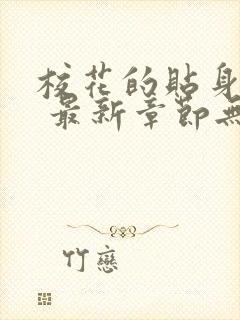 校花的貼身
最新章節無
竹戀